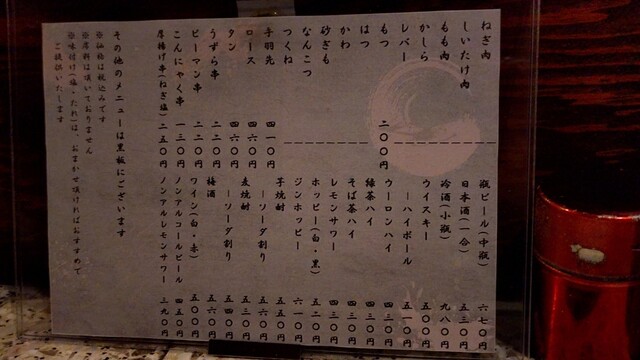 ねぎ肉
しいたけ肉
もも肉
かしら
レバー
もつ 二〇〇円
はつ
かわ
砂ぎも
なんこつ
つくね
手羽先 四一〇円
ロース 四六〇円
タン 四六〇円
うずら串 二二〇円
ピーマン串 二二〇円
こんにゃく串 一三〇円
厚揚げ串(ねぎ塩) 二五〇円
瓶ビール(中瓶) 六七〇円
日本酒(一合) 五三〇円
冷酒(小瓶) 九八〇円
ウイスキー 五〇〇円
ーハイボール 五一〇円
ウーロンハイ 四三〇円
緑茶ハイ 四三〇円
そば茶ハイ 四三〇円
レモンサワー 四三〇円
ホッピー(白・黒) 五二〇円
ジンホッピー 六一〇円
芋焼酎 五五〇円
ーソーダ割り 五六〇円
麦焼酎 五三〇円
ーソーダ割り 五四〇円
梅酒 五六〇円
ワイン(白・赤) 五〇〇円
ノンアルコールビール 四五〇円
ノンアルレモンサワー 三九〇円
その他のメニューは黒板にございます
※価格は税込みです
※席料は頂いておりません
※味付け(塩・たれ)は、おまかせ頂ければおすすめで
ご提供いたします